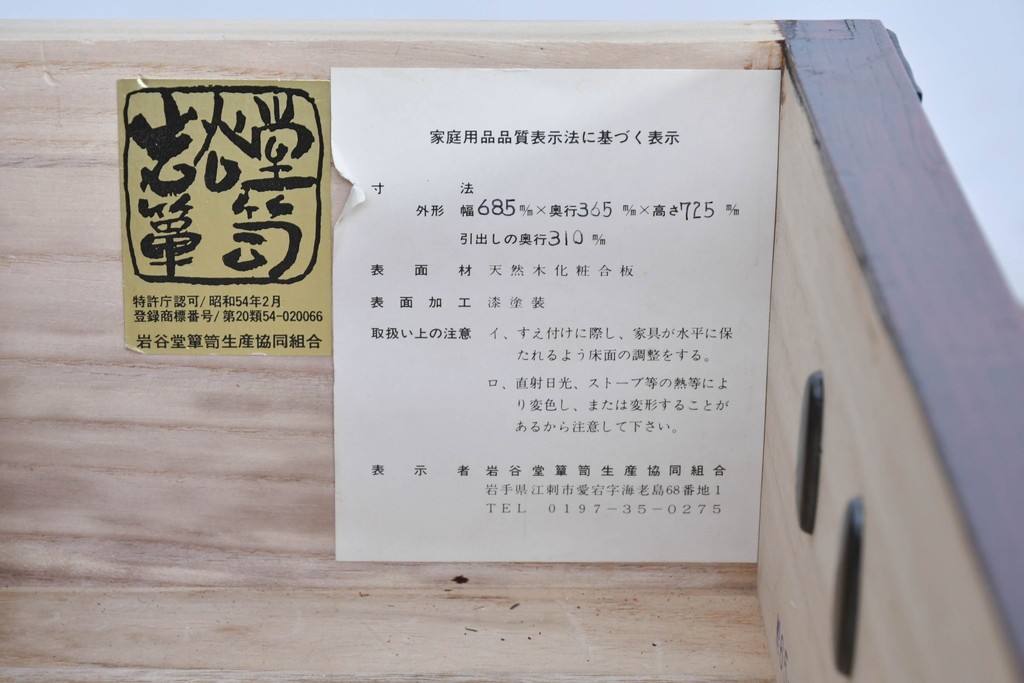 岩谷堂
箪笥
特許庁認可/昭和54年2月
登録商標番号/第20類54-020066
岩谷堂箪笥生産協同組合
家庭用品品質表示法に基づく表示
寸法
外形 幅685m/m×奥行365m/m×高さ725m/m
引出しの奥行310m/m
表面材 天然木化粧合板
表面加工 漆塗装
取扱い上の注意 イ、すえ付けに際し、家具が水平に保
たれるよう床面の調整をする。
ロ、直射日光、ストーブ等の熱等によ
り変色し、または変形することが
あるから注意して下さい。
表示者 岩谷堂箪笥生産協同組合
岩手県江刺市愛宕字海老島68番地1
TEL 0197-35-0275